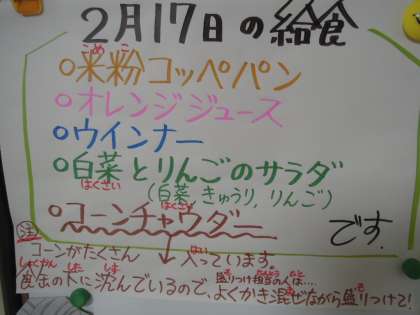 2月17日の給食
○米粉コッペパン
こめ こ
○オレンジジュース
○ウインナー
○白菜とりんごのサラダ
はくさい
(白菜,きゅうり,りんご)
はくさい
○コーンチャウダー
です。
注
コーンがたくさん 入っています。
はい
食缶の下に沈んでいるので、盛りつけ担当の人は…よくかき混ぜながら盛りつけて!
しょくかん した しず